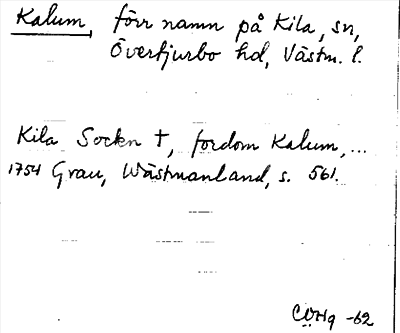 Kalum, förr namn på Kila, sn,
Övertjurbo hd, Västm. l.
Kila Sockn †, fordom Kalum,...
1754 Grau, Wästmanland, s. 561.
-62